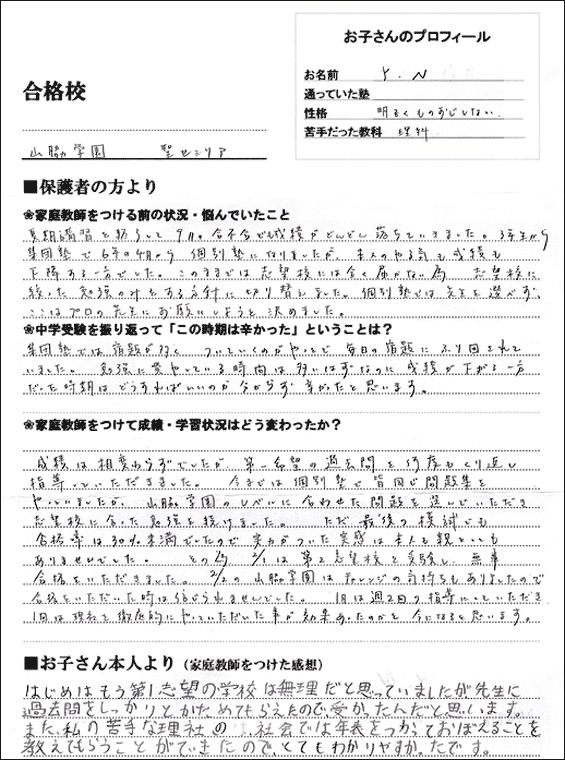 お子さんのプロフィール
お名前 Y.N
通っていた塾
性格 明るくものおじしない
苦手だった教科 理科
合格校
山脇学園 聖セシリア
■保護者の方より
❀家庭教師をつける前の状況・悩んでいたこと
夏期講習を終うして9月。合不合でも成績がどんどん落ちていきました。3年生から
集団塾で6年の4月から個別塾になりましたが、本人のやる気も成績も
下降する一方でした。このままでは志望校には全く届かない為 志望校に
絞った勉強のみをする方針に切り替えました。個別塾では先生を選べず、
ここはプロの先生にお願いしようと決めました。
❀中学受験を振り返って「この時期は辛かった」ということは？
集団塾では宿題が多く ついていくのがやっとで毎日の宿題にふり回されて
いました。勉強に費やしている時間は多いはずなのに成績が下がる一方
だった時期はどうすればいいのか分からず辛かったと思います。
❀家庭教師をつけて成績・学習状況はどう変わったか？
成績は相変わらずでしたが、第一希望の過去問を何度もくり返し
指導していただきました。今までは個別塾で皆同じ問題集を
やっていましたが、山脇学園のレベルに合わせた問題を選んでいただき
志望校に合った勉強を続けました。ただ最後の模試でも
合格率は30%未満でしたので実力がついた実感は本人も親としても
ありませんでした。その為 2/1は第2志望校を受験し、無事
合格をいただきました。2/2の山脇学園はチャレンジの気持ちもありましたので
合格をいただいた時は信じられませんでした。1月は週2回の指導にしていただき
1月は理社を徹底的にやっていただいた事が効果あったのかと今になると思います。
■お子さん本人より（家庭教師をつけた感想）
はじめはもう第1志望の学校は無理だと思っていましたが先生に
過去問をしっかりとかためてもらえたので受かったんだと思います。
また、私の苦手な理社の 社会では年表をつかっておぼえることを
教えてもらうことができましたので、とてもわかりやすかったです。